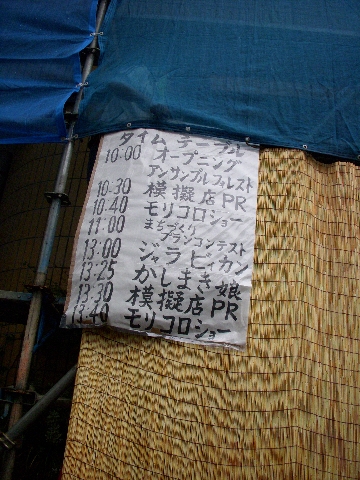 タイムテーブル
10:00 オープニング
アンサンブルフォレスト
10:30 模擬店PR
10:40 モリコロショー
11:00 まちづくり
プランコンテスト
13:00 ジャラビッカン
13:25 かしまさ娘
13:30 模擬店PR
13:40 モリコロショー